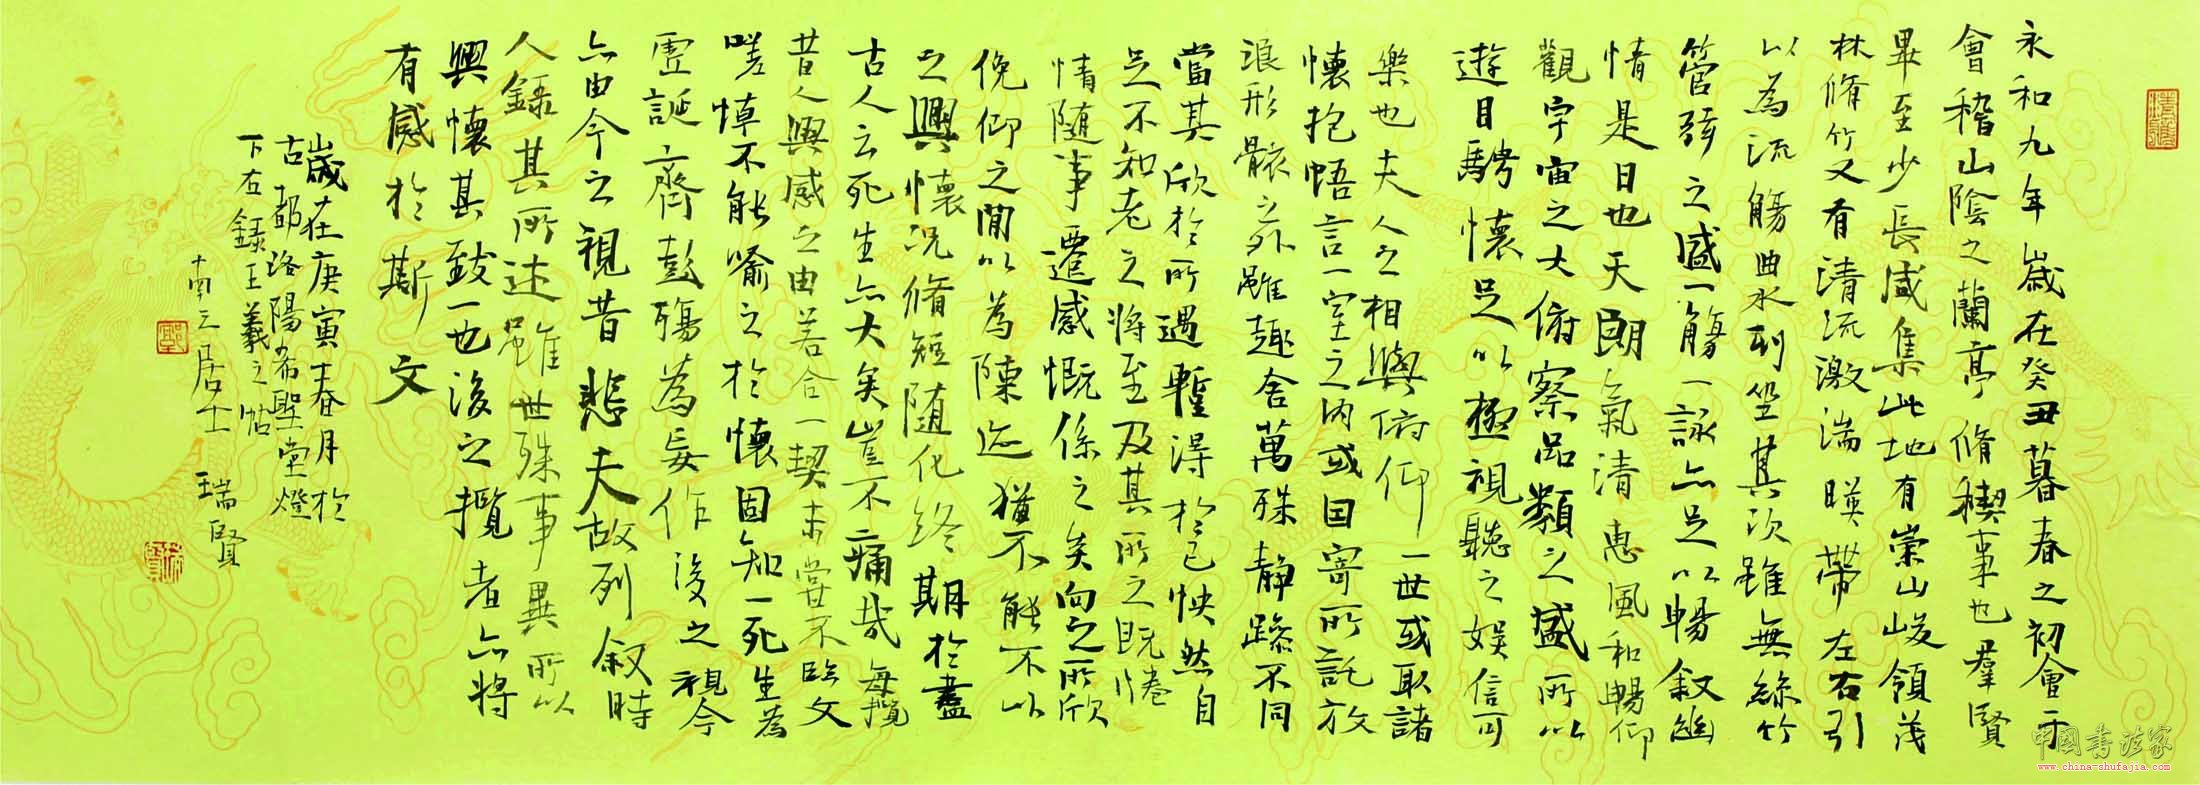 永和九年歲在癸丑暮春之初會于
會稽山陰之蘭亭脩稧事也羣賢
畢至少長咸集此地有崇山峻領茂
林脩竹又有清流激湍暎帶左右引
以為流觴曲水列坐其次雖無絲竹
管弦之盛一觴一詠亦足以暢叙幽
情是日也天朗氣清惠風和暢仰
觀宇宙之大俯察品類之盛所以
遊目騁懷足以極視聽之娛信可
樂也夫人之相與俯仰一世或取諸
懷抱悟言一室之內或因寄所託放
浪形骸之外雖趣舍萬殊静躁不同
當其欣於所遇暫得於己怏然自
足不知老之將至及其所之既惓
情隨事遷感慨係之矣向之所欣
俛仰之閒以為陳迹猶不能不以
之興懷況脩短隨化終期於盡
古人云死生亦大矣豈不痛哉每攬
昔人興感之由若合一契未嘗不臨文
嗟悼不能喻之於懷固知一死生為
虛誕齊彭殤為妄作後之視今
亦由今之視昔悲夫故列叙時
人錄其所述雖世殊事異所以
興懷其致一也後之攬者亦將
有感於斯文
歲在庚寅春月於
古都洛陽希聖堂燈
下右録王羲之帖
十南三居士 瑞賢
中國書法家
www.china-shufajia.com